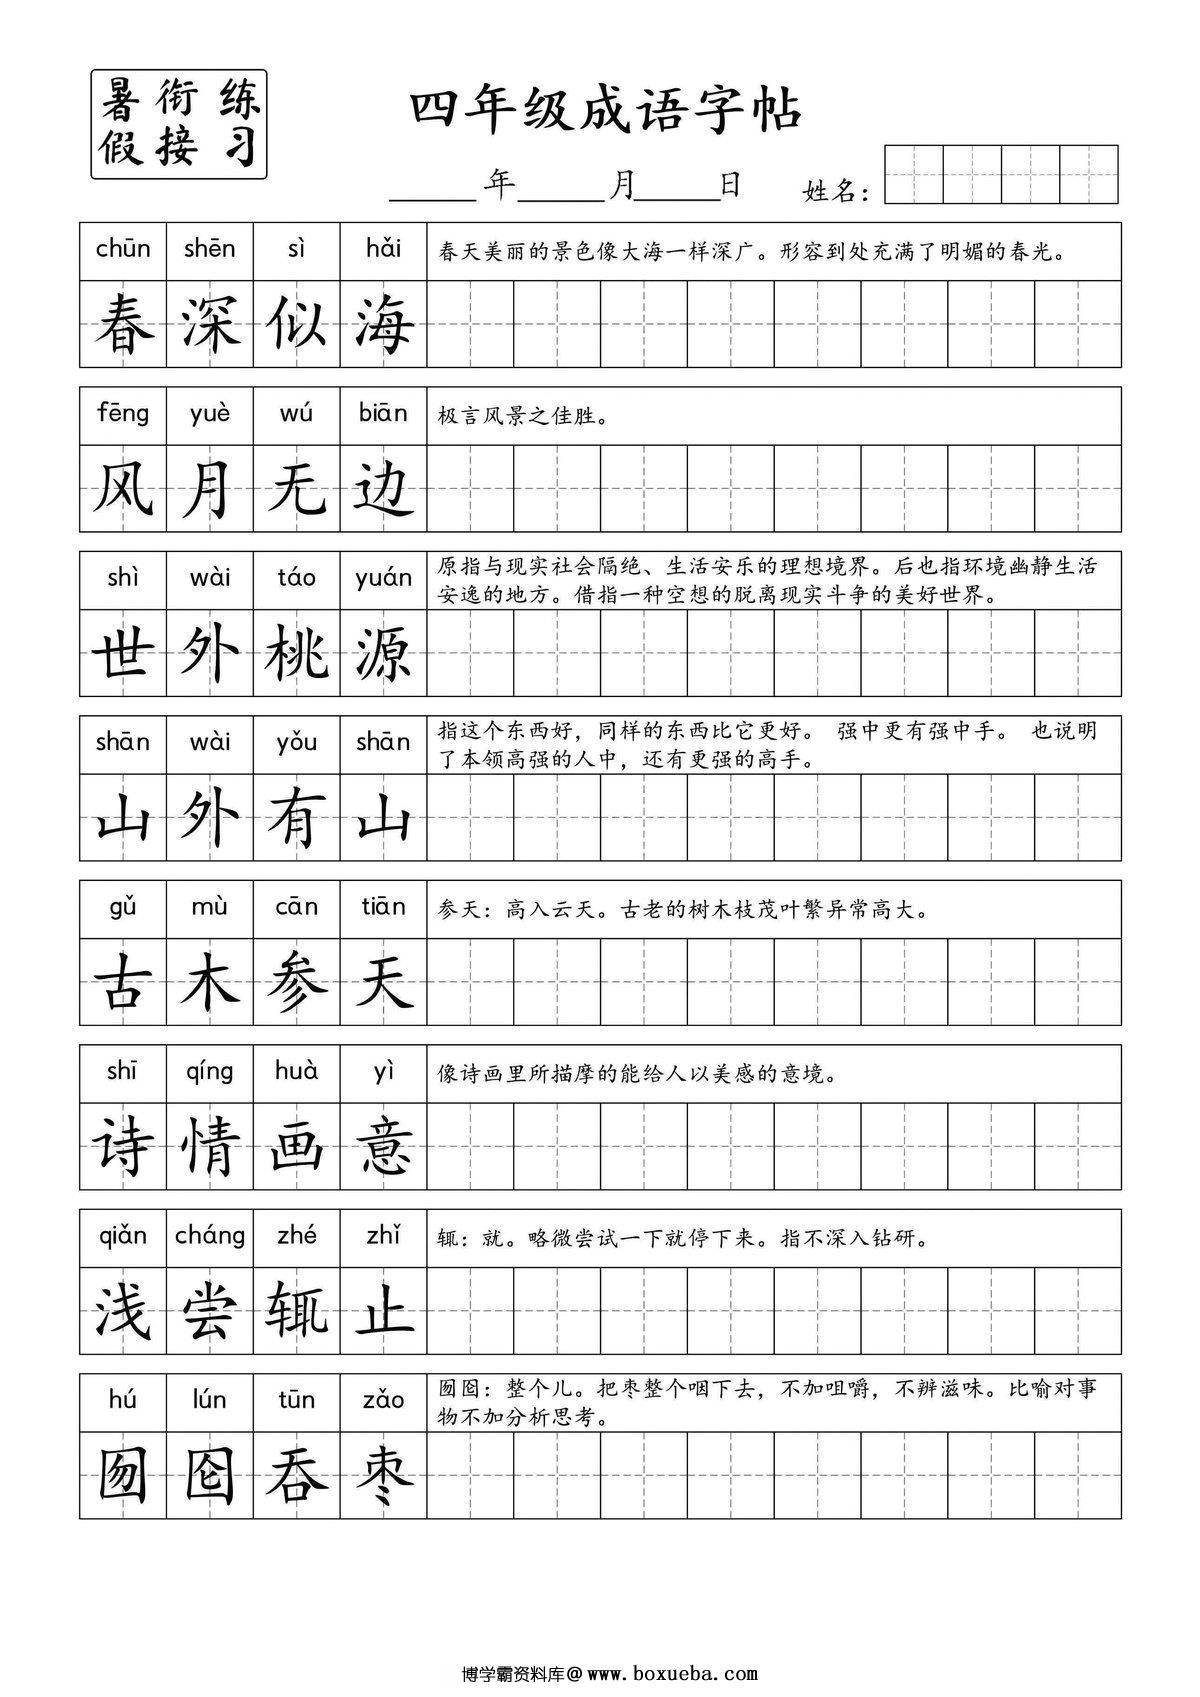 暑假衔接练习
四年级成语字帖
______年______月______日 姓名：
chūn shēn sì hǎi
春天美丽的景色像大海一样深广。形容到处充满了明媚的春光。
春深似海
fēng yuè wú biān
极言风景之佳胜。
风月无边
shì wài táo yuán
原指与现实社会隔绝、生活安乐的理想境界。后也指环境幽静生活
安逸的地方。借指一种空想的脱离现实斗争的美好世界。
世外桃源
shān wài yǒu shān
指这个东西好，同样的东西比它更好。 强中更有强中手。 也说明
了本领高强的人中，还有更强的高手。
山外有山
gǔ mù cān tiān
参天：高入云天。古老的树木枝茂叶繁异常高大。
古木参天
shī qíng huà yì
像诗画里所描摩的能给人以美感的意境。
诗情画意
qiǎn cháng zhé zhǐ
辄：就。略微尝试一下就停下来。指不深入钻研。
浅尝辄止
hú lún tūn zǎo
囫囵：整个儿。把枣整个咽下去，不加咀嚼，不辨滋味。比喻对事
物不加分析思考。
囫囵吞枣
博学霸资料库@www.boxueba.com